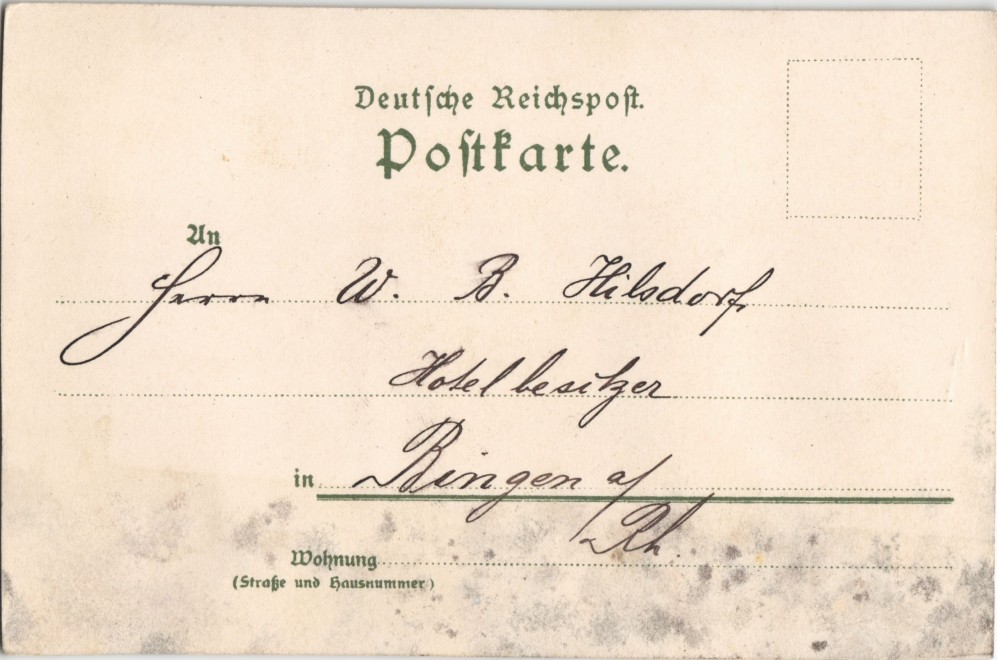 Deutsche Reichspost.
Postkarte.
An
Herrn W. B. Hilsdorf,
Hotelbesitzer
in Bingen a/
Rh.
Wohnung
(Straße und Hausnummer)